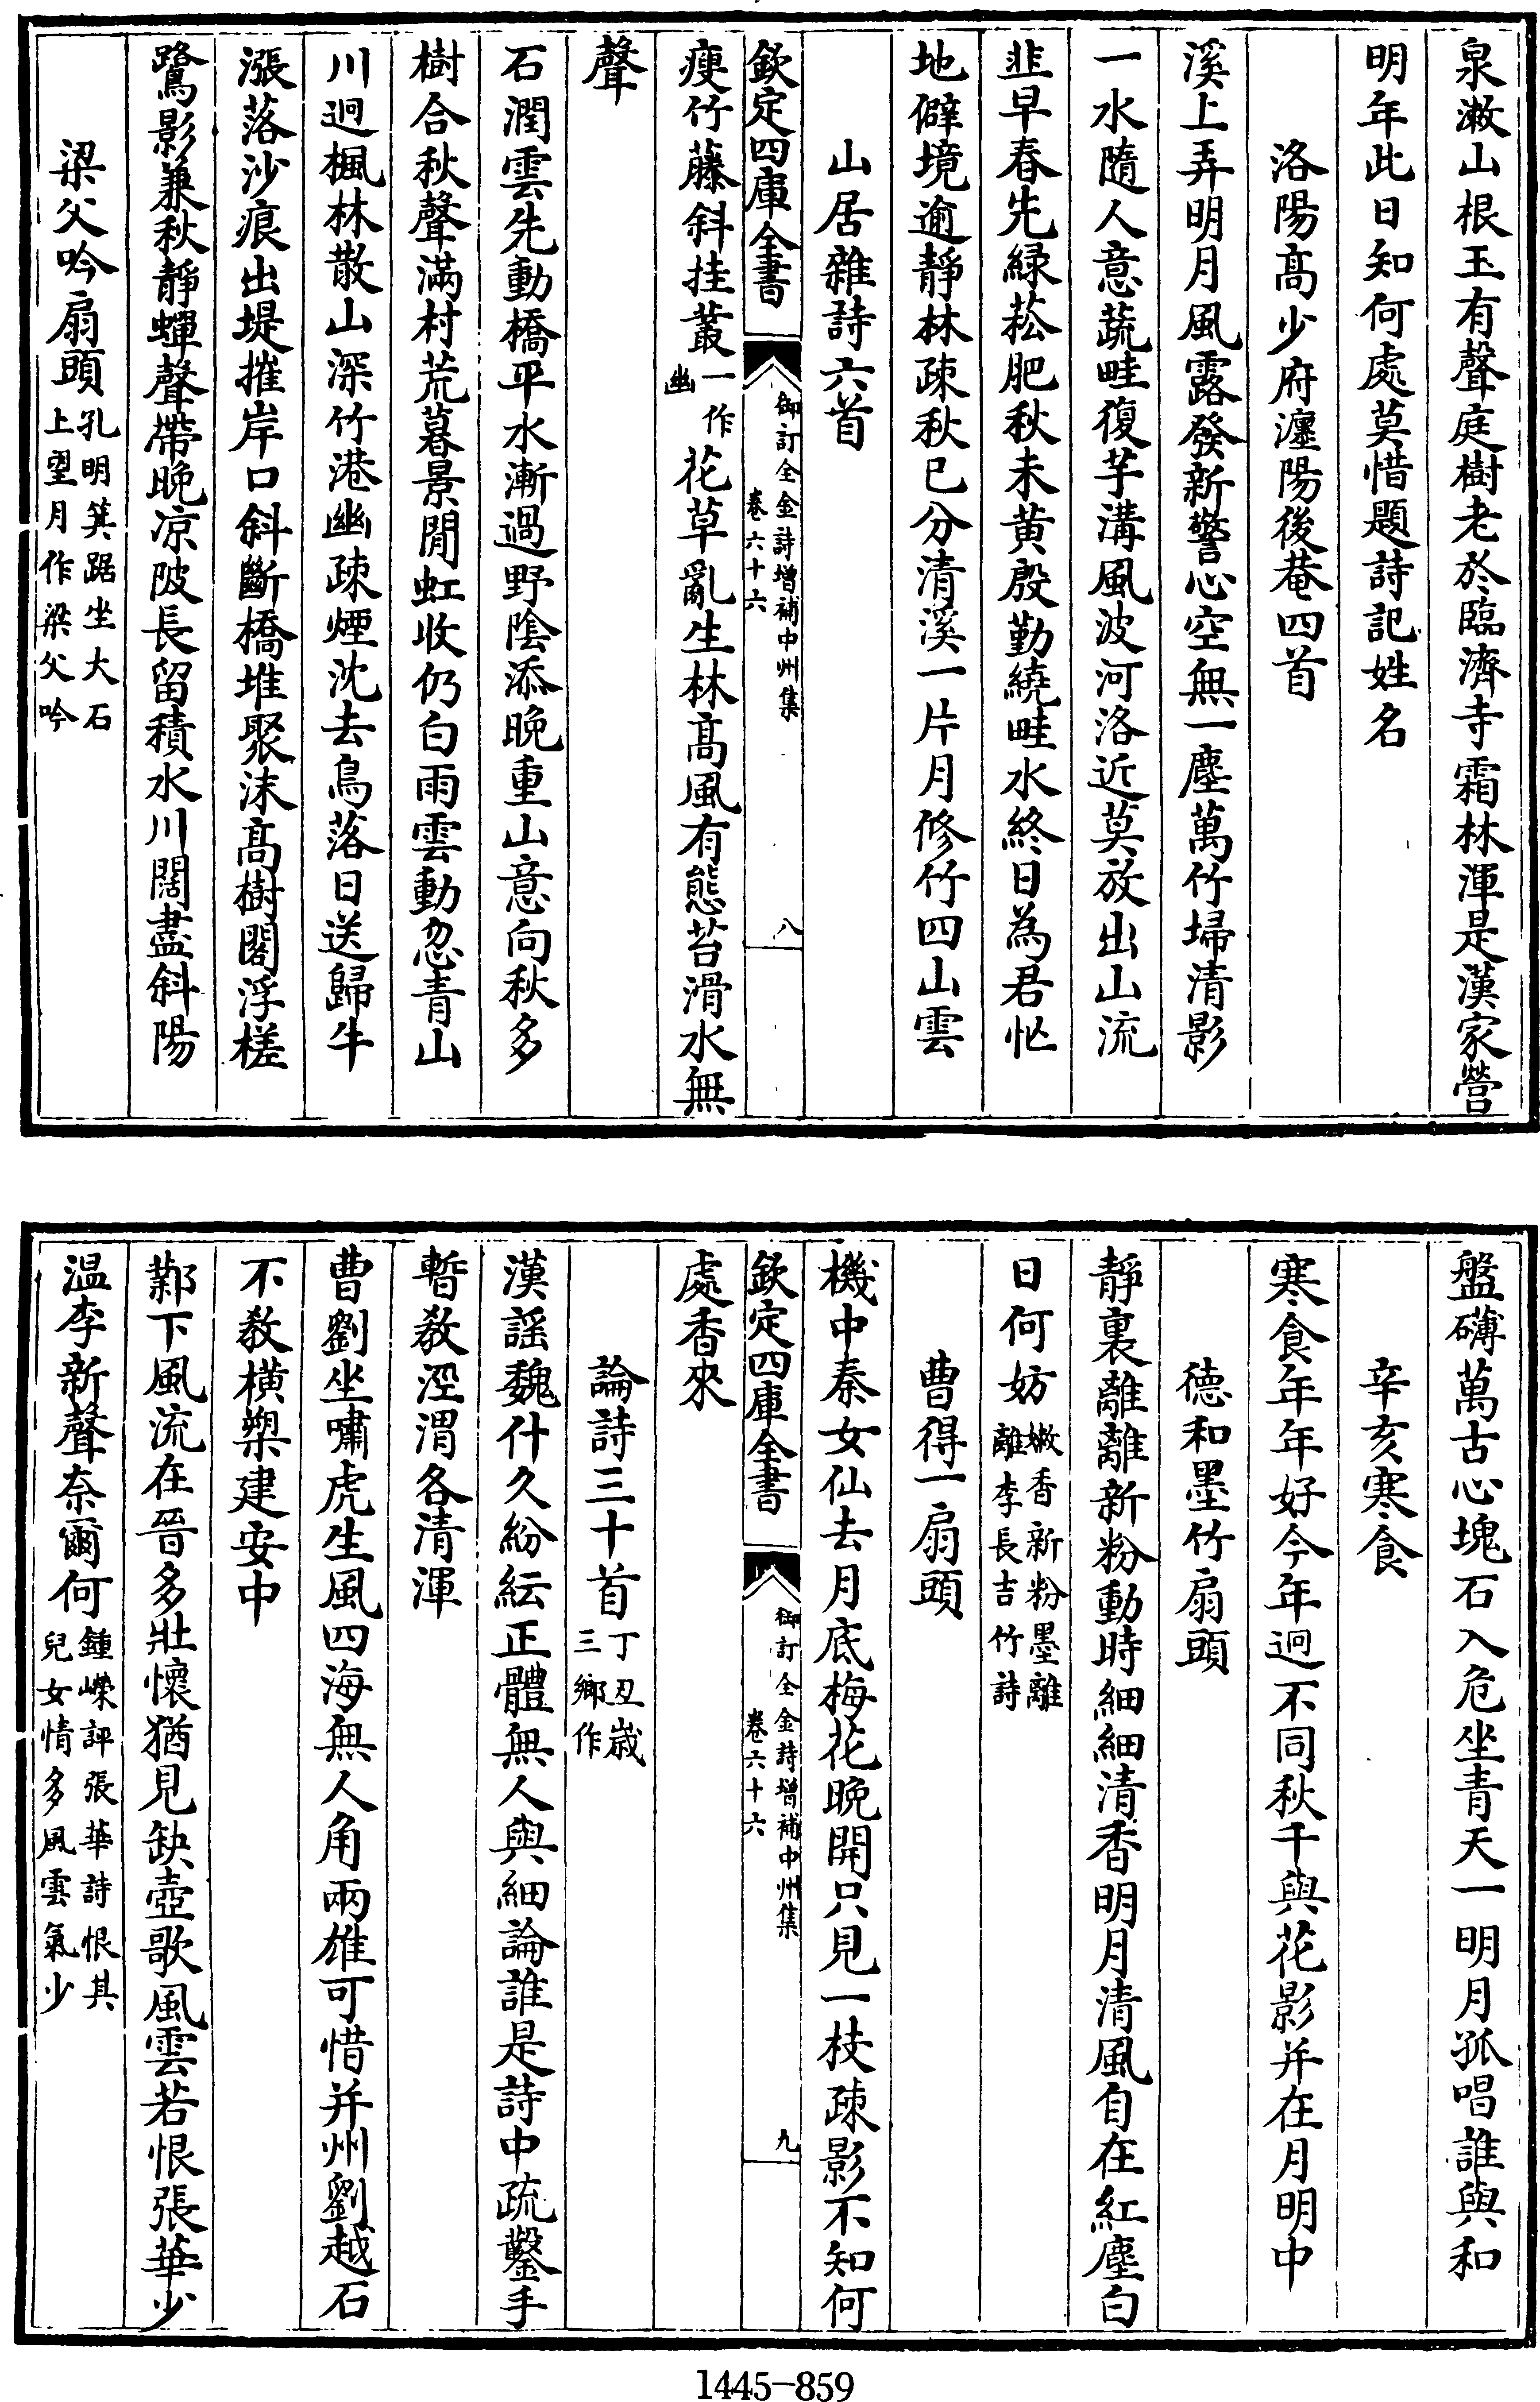 泉漱山根玉有聲庭樹老於臨濟寺霜林渾是漢家營
明年此日知何處莫惜題詩記姓名
洛陽髙少府瀍陽後菴四首
溪上弄明月風露發新警心空無一塵萬竹埽清影
一水隨人意蔬畦復芋溝風波河洛近莫放出山流
韭早春先緑菘肥秋未黄殷勤繞畦水終日為君忙
地僻境逾靜林疎秋已分清溪一片月修竹四山雲
山居雜詩六首
欽定四庫全書
御訂全金詩增補中州集
卷六十六
八
瘦竹藤斜挂叢一作幽花草亂生林髙風有態苔滑水無
聲
石潤雲先動橋平水漸過野陰添晚重山意向秋多
樹合秋聲滿村荒暮景閒虹收仍白雨雲動忽青山
川迥楓林散山深竹港幽疎煙沈去鳥落日送歸牛
漲落沙痕出堤摧岸口斜斷橋堆聚沫髙樹閣浮槎
鷺影兼秋靜蟬聲帶晚凉陂長留積水川闊盡斜陽
梁父吟扇頭孔明箕踞坐大石
上望月作梁父吟
盤礴萬古心塊石入危坐青天一明月孤唱誰與和
辛亥寒食
寒食年年好今年迥不同秋千與花影并在月明中
德和墨竹扇頭
靜裏離離新粉動時細細清香明月清風自在紅塵白
日何妨嫩香新粉墨離
離李長吉竹詩
曹得一扇頭
機中秦女仙去月底梅花晚開只見一枝疎影不知何
欽定四庫全書
御訂全金詩增補中州集
卷六十六
九
處香來
論詩三十首丁丑嵗
三鄉作
漢謡魏什久紛紜正體無人與細論誰是詩中疏鑿手
暫教涇渭各清渾
曹劉坐嘯虎生風四海無人角兩雄可惜并州劉越石
不教横槊建安中
鄴下風流在晉多壯懷猶見缺壺歌風雲若恨張華少
温李新聲奈爾何鍾嶸評張華詩恨其
兒女情多風雲氣少
1445-859